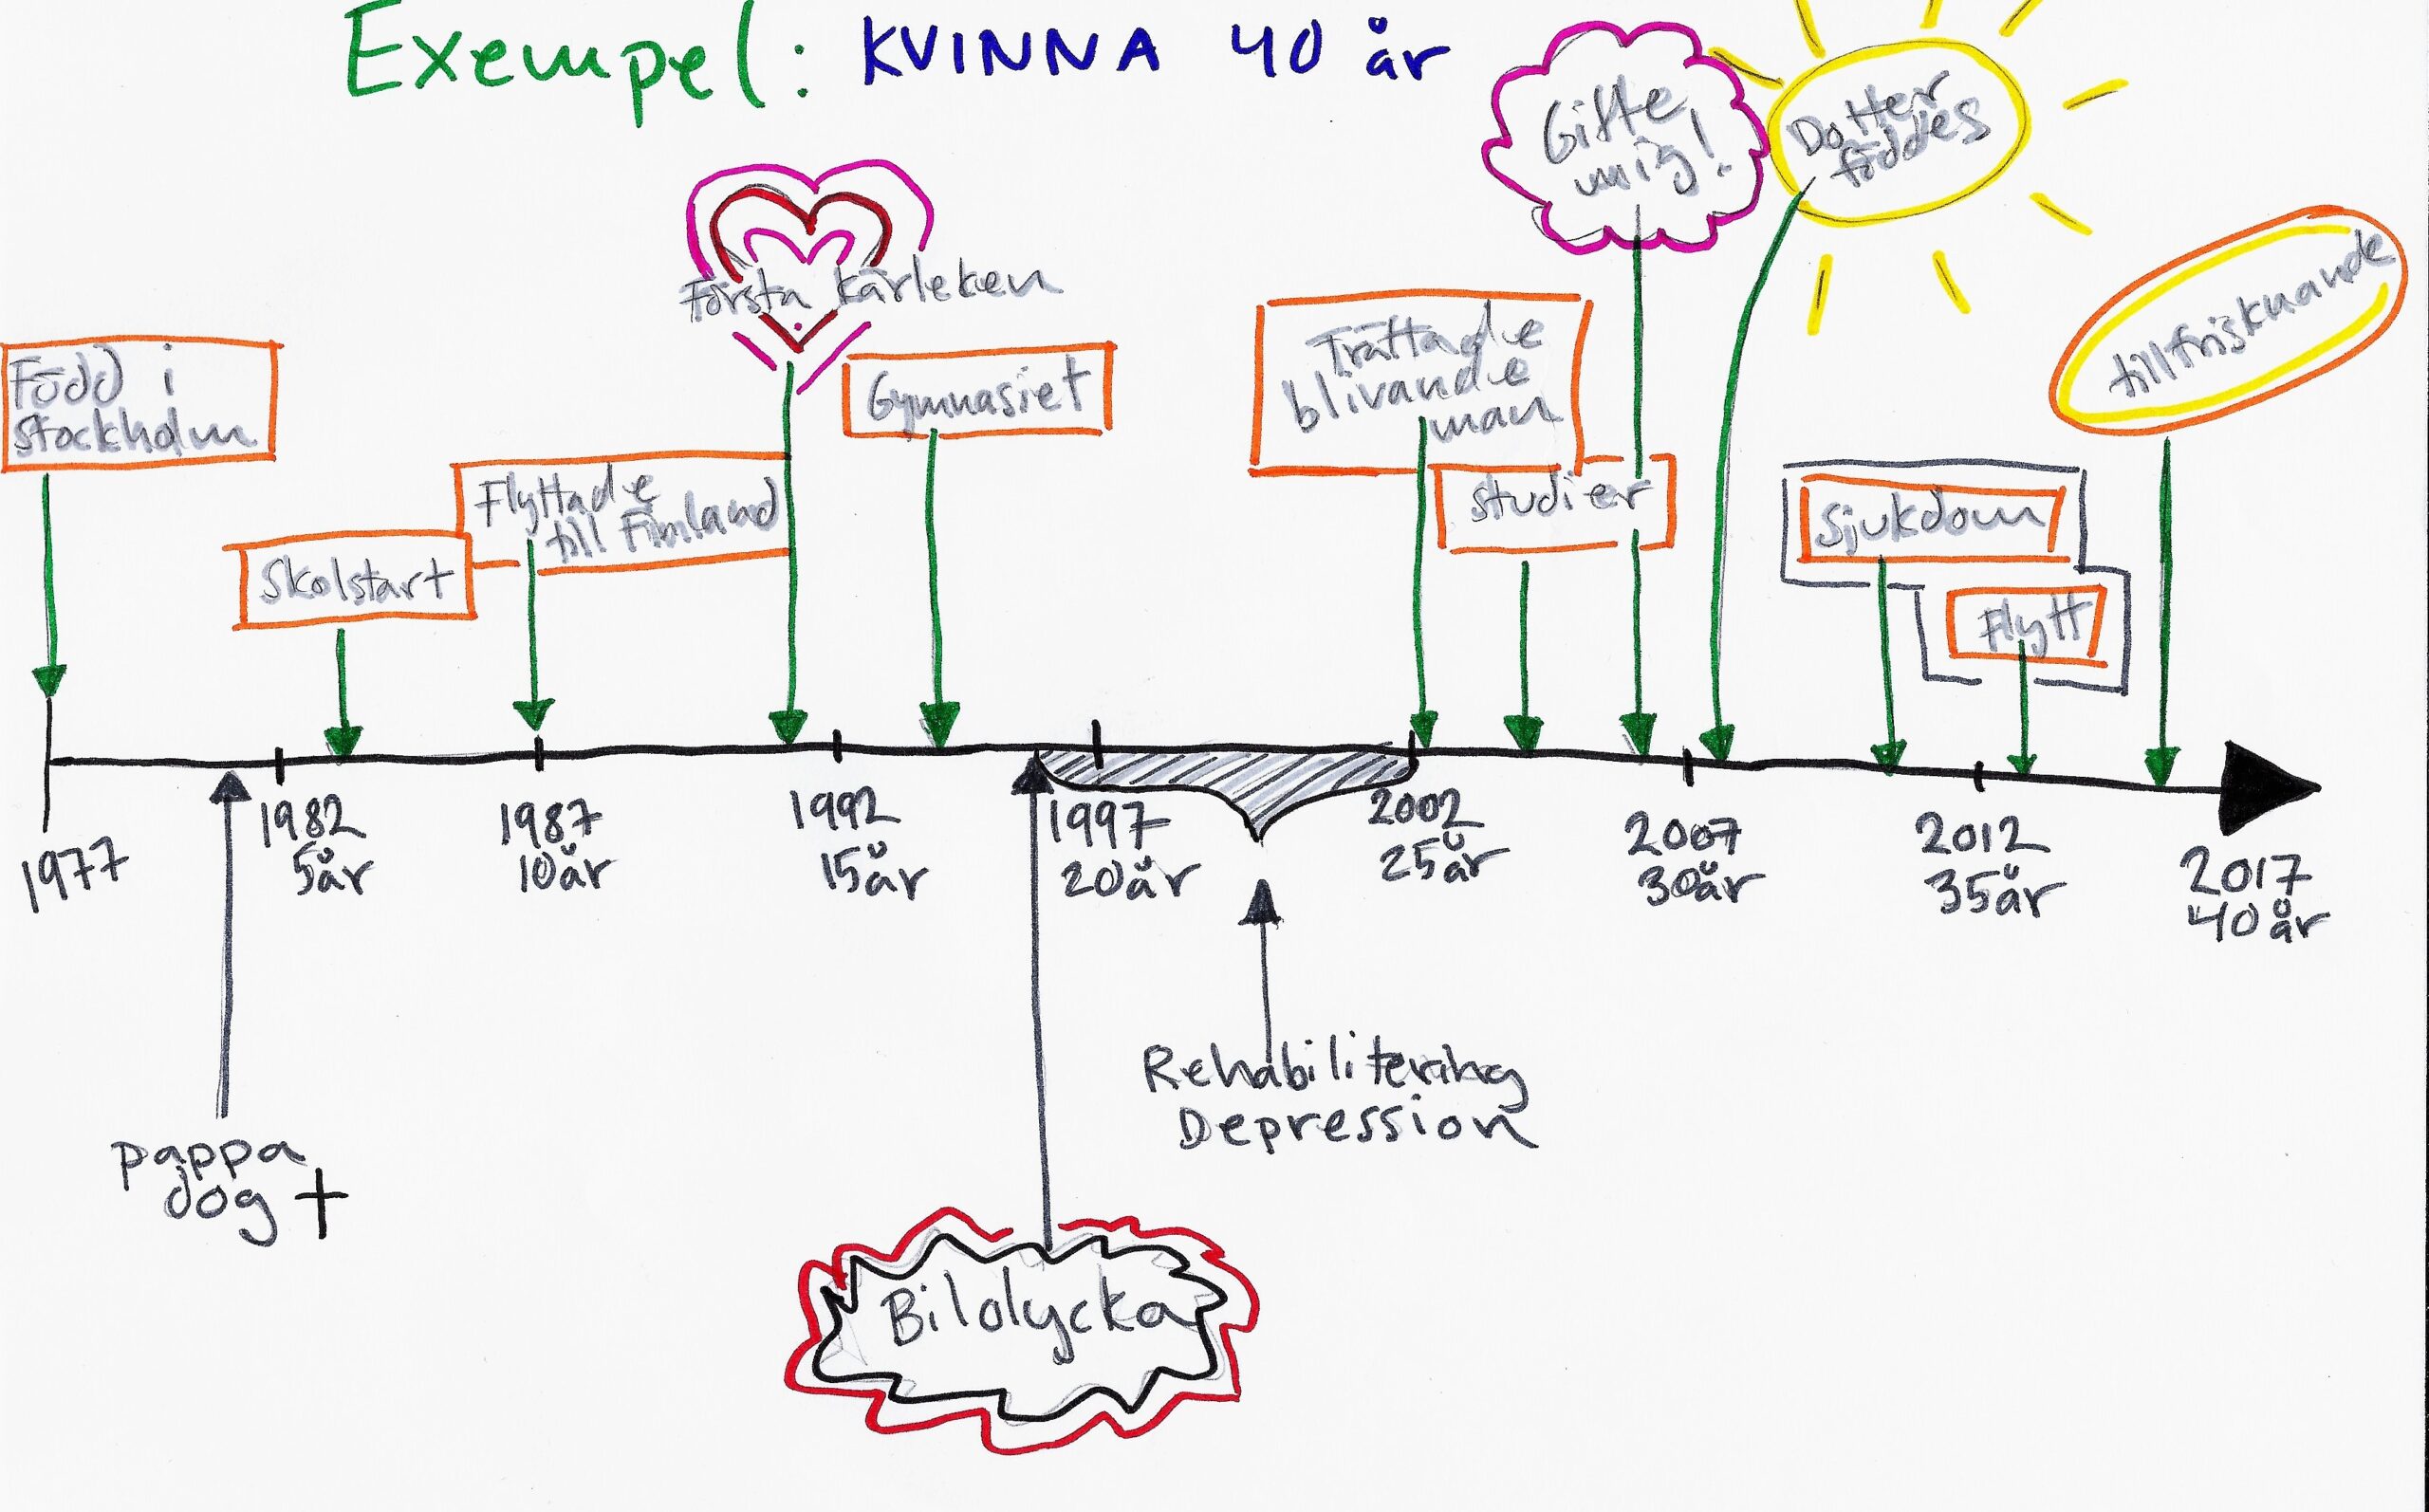 Exempel: KVINNA 40 år
Gifte
mig!
Dotter
föddes
Första kärleken
tillfrisknande
Född i
stockholm
Gymnasiet
Träffade
blivande
man
Flyttade
till Finland
studier
Sjukdom
Skolstart
Flytt
1977
1982
5år
1987
10år
1992
15år
1997
20år
2002
25år
2007
30år
2012
35år
2017
40år
pappa
dog †
Rehabilitering
Depression
Bilolycka